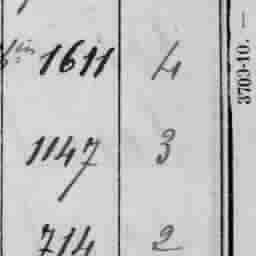 1611 4
1147 3
714 2
3703-10. —